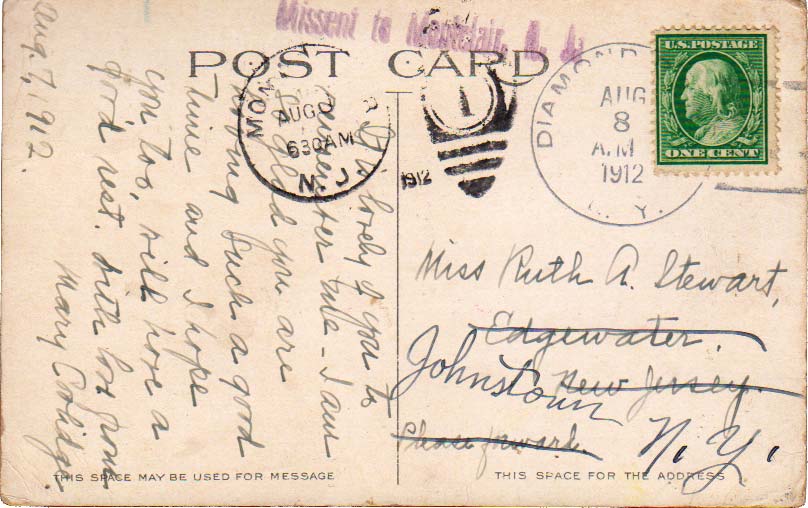 Missent to Montclair, N. J.
POST CARD
U.S. POSTAGE
ONE CENT
MON
AUG
630AM
N. J.
1912
1
DIAMOND
AUG
8
A.M
1912
N. Y.
Aug. 7, 1912.
lovely of you to
remember me - I am
so glad you are
having such a good
time and I hope
you too, will have a
good rest. With love from
Mary
Miss Ruth A. Stewart,
Edgewater,
New Jersey.
Please forward.
Johnstown
N. Y.
THIS SPACE MAY BE USED FOR MESSAGE
THIS SPACE FOR THE ADDRESS